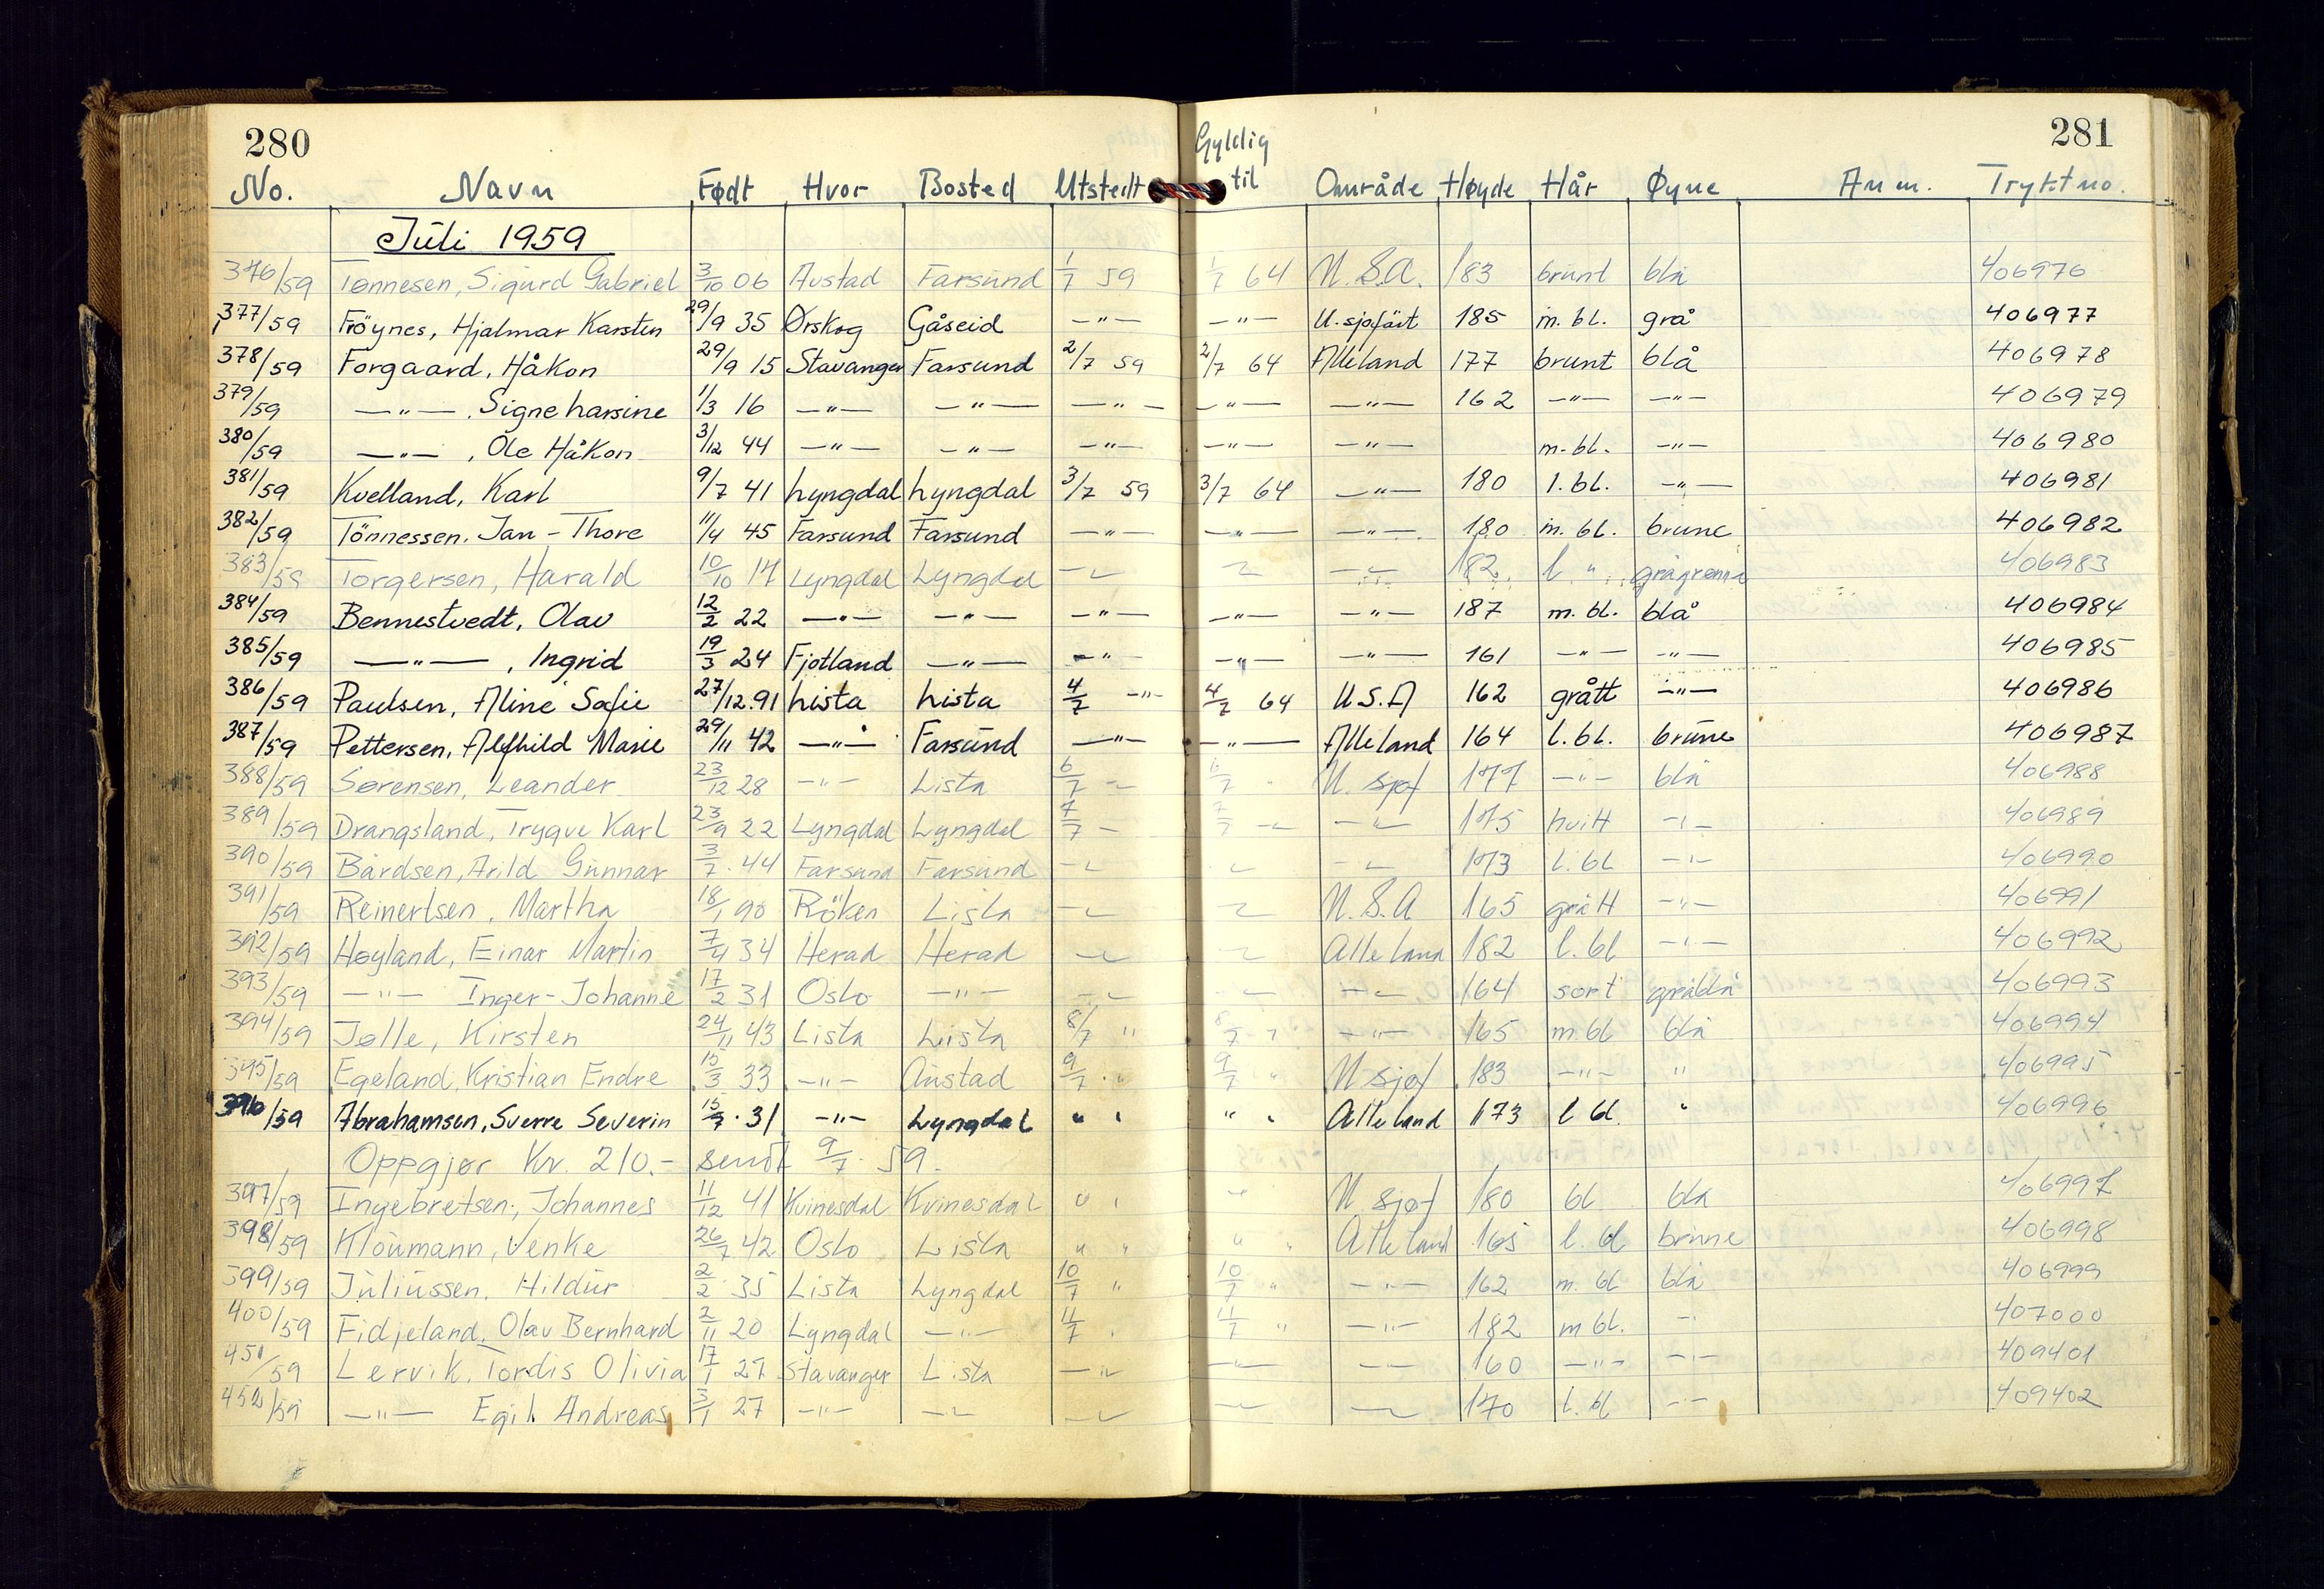 280
281
No. Navn Født Hvor Bosted Utstedt Gyldig til Område Høyde Hår Øyne Anm. Trykt no.
Juli 1959
376/59 Tønnesen, Sigurd Gabriel 3/10 06 Austad Farsund 1/7 59 1/7 64 U.S.A. 183 brunt blå 406976
377/59 Fröynes, Hjalmar Karsten 29/9 35 Ørskog Gåseid —"— —"— U. sjøfart 185 m. bl. grå 406977
378/59 Forgaard, Håkon 29/9 15 Stavanger Farsund 2/7 59 2/7 64 Alle land 177 brunt blå 406978
379/59 —"—, Signe Larsine 1/3 16 —"— —"— —"— —"— —"— 162 —"— —"— 406979
380/59 —"—, Ole Håkon 3/12 44 —"— —"— —"— —"— —"— m. bl. —"— 406980
381/59 Kvelland, Karl 9/7 41 Lyngdal Lyngdal 3/7 59 3/7 64 —"— 180 l. bl. —"— 406981
382/59 Tönnessen, Jan - Thore 11/4 45 Farsund Farsund —"— —"— —"— 180 m. bl. brune 406982
383/59 Torgersen, Harald 10/10 17 Lyngdal Lyngdal —"— —"— —"— 182 l. " grågrønne 406983
384/59 Bennestvedt, Olav 12/2 22 —"— —"— —"— —"— —"— 187 m. bl. blå 406984
385/59 —"—, Ingrid 19/3 24 Fjotland —"— —"— —"— —"— 161 —"— —"— 406985
386/59 Paulsen, Aline Sofie 27/12.91 Lista Lista 4/7 —"— 4/7 64 U.S.A 162 grått —"— 406986
387/59 Pettersen, Alfhild Marie 29/11 42 —"— Farsund —"— —"— Alle land 164 l. bl. brune 406987
388/59 Sørensen, Leander 23/12 28 —"— Lista 6/7 — 6/7 " U. sjøf 177 —"— blå 406988
389/59 Drangsland, Trygve Karl 23/9 22 Lyngdal Lyngdal 7/7 — 7/7 —"— —"— 175 hvitt —"— 406989
390/59 Bårdsen, Arild Gunnar 3/7 44 Farsund Farsund —"— —"— —"— 173 l. bl —"— 406990
391/59 Reinertsen, Martha 18/1 90 Röken Lista —"— —"— U.S.A 165 grått —"— 406991
392/59 Høyland, Einar Martin 7/4 34 Herad Herad —"— —"— Alle land 182 l. bl —"— 406992
393/59 —"— Inger-Johanne 17/2 31 Oslo —"— —"— —"— —"— 164 sort gråblå 406993
394/59 Jølle, Kirsten 24/11 43 Lista Lista 8/7 " 8/7 " —"— 165 m bl blå 406994
395/59 Egeland, Kristian Endre 15/3 33 —"— Austad 9/7 " 9/7 " U sjøf 183 —"— " 406995
396/59 Abrahamsen, Sverre Severin 15/7 31 —"— Lyngdal " " " " Alle land 173 l bl. " 406996
Oppgjør Kr. 210.- sendt 9/7 59.
397/59 Ingebretsen, Johannes 11/12 41 Kvinesdal Kvinesdal " " " U sjøf 180 bl. blå 406997
398/59 Kloumann, Venke 26/7 42 Oslo Lista " " " " Alle land 165 l. bl brune 406998
399/59 Juliussen, Hildur 2/2 35 Lista Lyngdal 10/7 " 10/7 " —"— 162 m. bl blå 406999
400/59 Fidjeland, Olav Bernhard 2/11 20 Lyngdal —"— 11/7 " 11/7 " —"— 182 m bl. —"— 407000
451/59 Lervik, Tordis Olivia 17/1 27 Stavanger Lista —"— —"— —"— 160 —"— —"— 409401
452/59 —"— Egil Andreas 5/1 27 —"— —"— —"— —"— —"— 170 l. bl —"— 409402